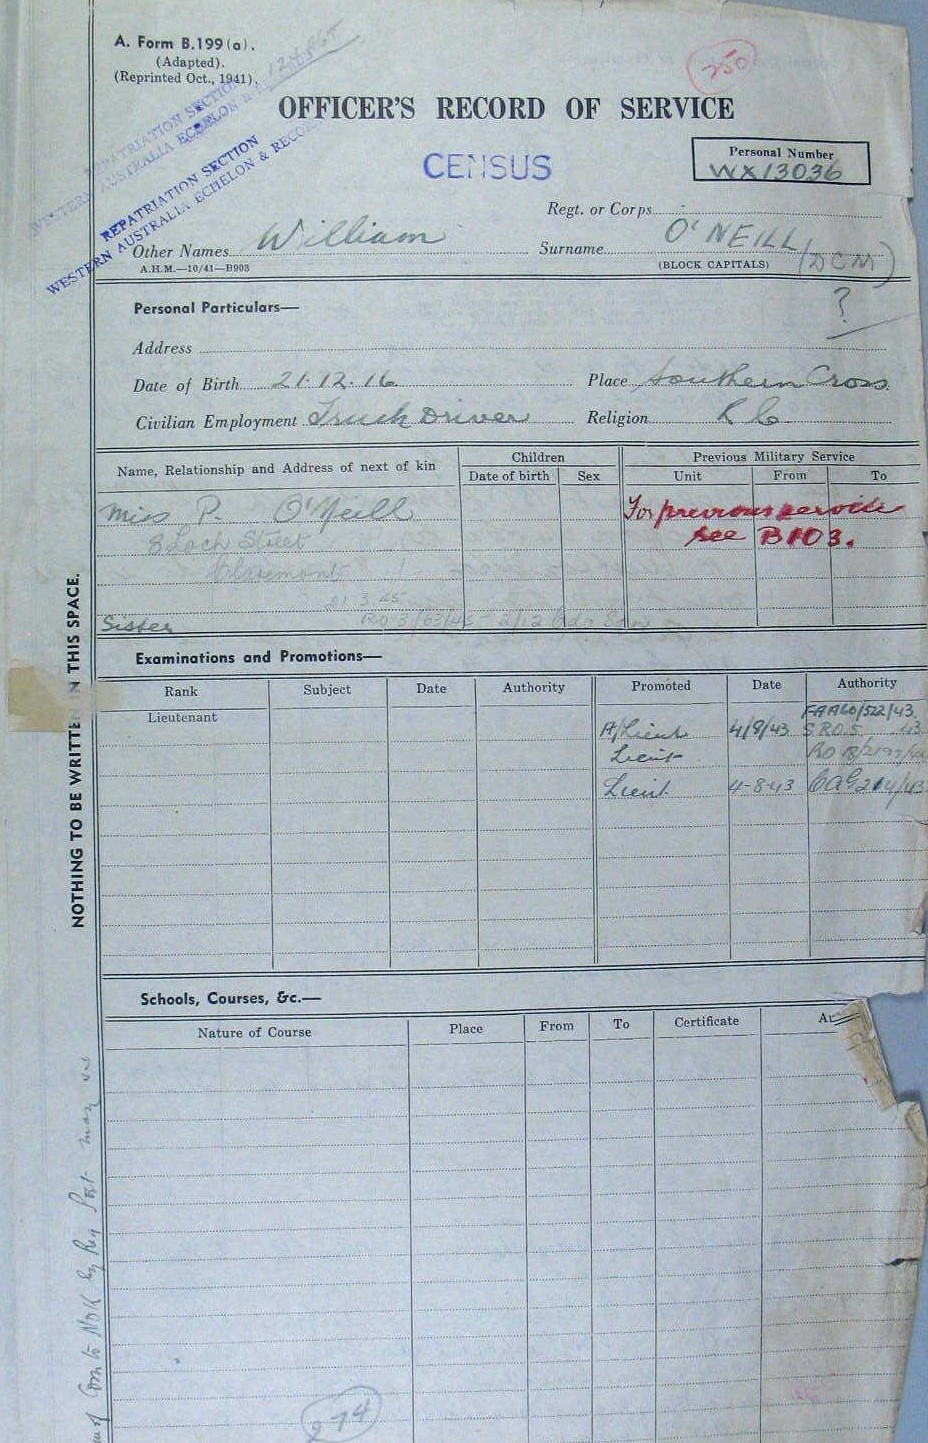 A. Form B.199 (a).
(Adapted).
(Reprinted Oct., 1941).
250
OFFICER'S RECORD OF SERVICE
REPATRIATION SECTION
WESTERN AUSTRALIA ECHELON &
REPATRIATION SECTION
WESTERN AUSTRALIA ECHELON & RECORDS
CENSUS
Personal Number
WX13036
Regt. or Corps
Other Names William Surname O'NEILL (DCM)
A.H.M.—10/41—B903 (BLOCK CAPITALS)
Personal Particulars—
?
Address
Date of Birth 21.12.16 Place Southern Cross
Civilian Employment Truck Driver Religion R C
Name, Relationship and Address of next of kin Children Previous Military Service
Date of birth Sex Unit From To
Miss P. O'Neill For previous service
8 Loch Street see B103.
Claremont
21 3 45
Sister RO 3/63/45 - 2/12
Examinations and Promotions—
Rank Subject Date Authority Promoted Date Authority
Lieutenant FAAGO/522/43
A/Lieut 4/8/43 S.R.O.5 43
Lieut
Lieut 4-8-43 CAG 204/43
NOTHING TO BE WRITTEN IN THIS SPACE.
Schools, Courses, &c.—
Nature of Course Place From To Certificate
to NOK by Reg Post
274